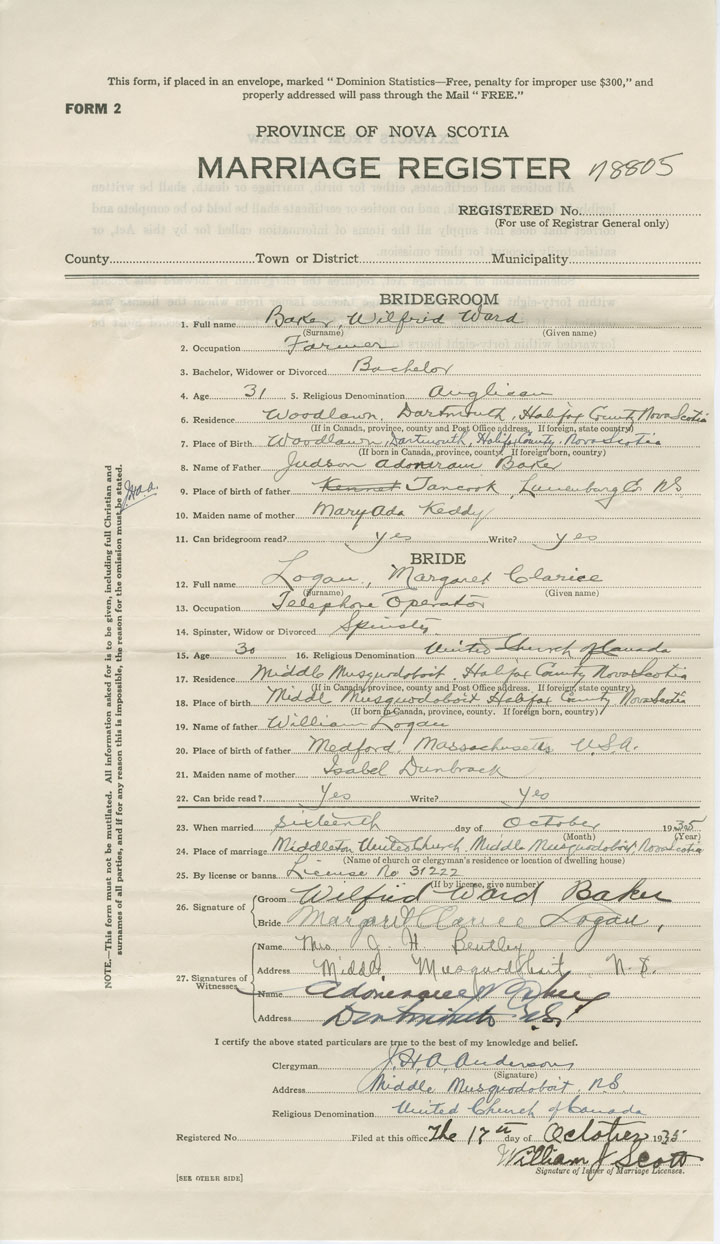 This form, if placed in an envelope, marked "Dominion Statistics—Free, penalty for improper use $300," and
properly addressed will pass through the Mail "FREE."
FORM 2
PROVINCE OF NOVA SCOTIA
MARRIAGE REGISTER 8805
REGISTERED No.
(For use of Registrar General only)
County Town or District Municipality
BRIDEGROOM
1. Full name Baker, Wilfrid Ward
(Surname) (Given name)
2. Occupation Farmer
3. Bachelor, Widower or Divorced Bachelor
4. Age 31 5. Religious Denomination Anglican
6. Residence Woodlawn, Dartmouth, Halifax County Nova Scotia
(If in Canada, province, county and Post Office address. If foreign, state country)
7. Place of Birth Woodlawn, Dartmouth, Halifax County, Nova Scotia
(If born in Canada, province, county. If foreign born, country)
8. Name of Father Judson Adoniram Baker
9. Place of birth of father Tancook, Lunenburg Co. N.S.
10. Maiden name of mother Mary Ada Keddy
11. Can bridegroom read? yes Write? yes
BRIDE
12. Full name Logan, Margaret Clarice
(Surname) (Given name)
13. Occupation Telephone Operator
14. Spinster, Widow or Divorced Spinster
15. Age 30 16. Religious Denomination United Church of Canada
17. Residence Middle Musquodoboit, Halifax County Nova Scotia
(If in Canada, province, county and Post Office address. If foreign, state country)
18. Place of birth Middle Musquodoboit Halifax County Nova Scotia
(If born in Canada, province, county. If foreign born, country)
19. Name of father William Logan
20. Place of birth of father Medford, Massachusetts U.S.A.
21. Maiden name of mother Isabel Dunbrack
22. Can bride read? Yes Write? Yes
23. When married sixteenth day of October 1935
(Month) (Year)
24. Place of marriage Middleton United Church, Middle Musquodoboit Nova Scotia
(Name of church or clergyman's residence or location of dwelling house)
25. By license or banns License No 31222
(If by license, give number)
26. Signature of Groom Wilfrid Ward Baker
Bride Margaret Clarice Logan,
27. Signatures of Witnesses Name Mrs. J. H. Bentley
Address Middle Musquodoboit N.S.
Name
Address Dartmouth N.S.
I certify the above stated particulars are true to the best of my knowledge and belief.
Clergyman J. H. A. Anderson
(Signature)
Address Middle Musquodoboit, N.S.
Religious Denomination United Church of Canada
Registered No. Filed at this office The 17th day of October 1935
William J Scott
Signature of Issuer of Marriage Licenses.
[SEE OTHER SIDE]
NOTE.—This form must not be mutilated. All information asked for is to be given, including full Christian and
surnames of all parties, and if for any reason this is impossible, the reason for the omission must be stated.
J.H.A.A.